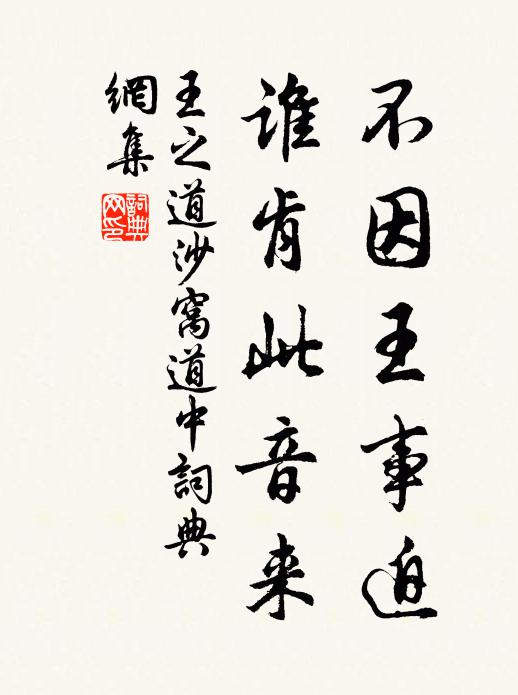 不因王事迫
誰肯此音来
王之道沙窩道中詞典
網集
詞典
网印